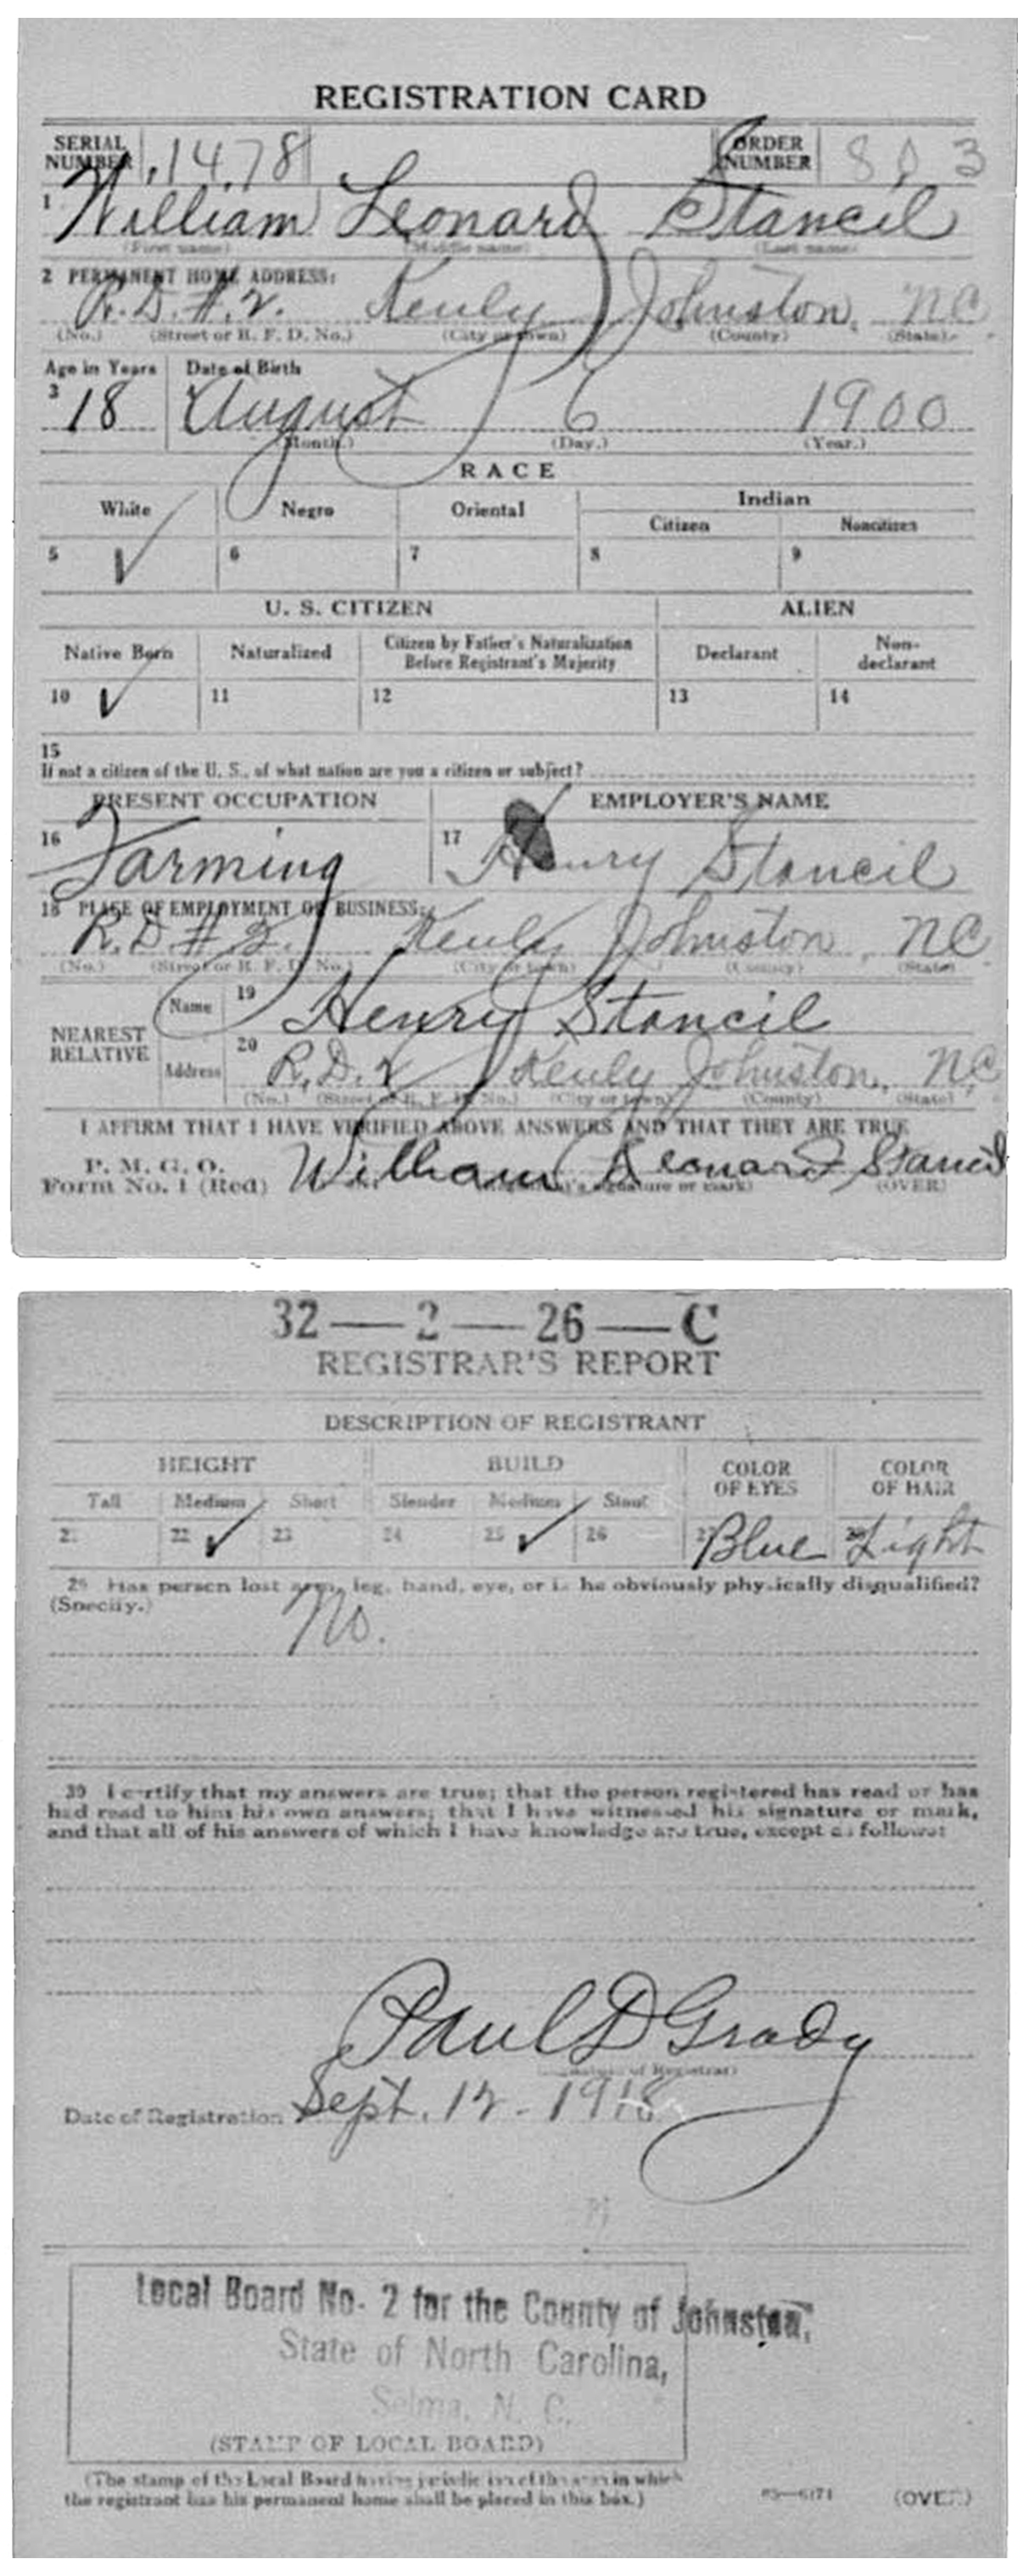 REGISTRATION CARD
SERIAL NUMBER 1478 ORDER NUMBER 803
1 William Leonard Stancil
(First name) (Middle name) (Last name)
2 PERMANENT HOME ADDRESS:
R.D.#.2. Kenly Johnston, NC
(No.) (Street or R. F. D. No.) (City or town) (County) (State)
Age in Years Date of Birth
3 18 August 6 1900
(Month.) (Day.) (Year.)
RACE
White Negro Oriental Indian
Citizen Noncitizen
5 ✓ 6 7 8 9
U. S. CITIZEN ALIEN
Native Born Naturalized Citizen by Father's Naturalization Before Registrant's Majority Declarant Non-declarant
10 ✓ 11 12 13 14
15
If not a citizen of the U. S., of what nation are you a citizen or subject?
PRESENT OCCUPATION EMPLOYER'S NAME
16 Farming 17 Henry Stancil
18 PLACE OF EMPLOYMENT OR BUSINESS:
R.D # 2. Kenly Johnston, NC
(No.) (Street or R. F. D. No.) (City or town) (County) (State)
NEAREST RELATIVE Name 19 Henry Stancil
Address 20 R.D.2 Kenly Johnston, NC
(No.) (Street or R. F. D. No.) (City or town) (County) (State)
I AFFIRM THAT I HAVE VERIFIED ABOVE ANSWERS AND THAT THEY ARE TRUE
P. M. G. O.
Form No. 1 (Red) William Leonard Stancil
(Registrant's signature or mark) (OVER)
32—2—26—C
REGISTRAR'S REPORT
DESCRIPTION OF REGISTRANT
HEIGHT BUILD COLOR OF EYES COLOR OF HAIR
Tall Medium Short Slender Medium Stout
21 22 ✓ 23 24 25 ✓ 26 27 Blue 28 Light
29 Has person lost arm, leg, hand, eye, or is he obviously physically disqualified?
(Specify.) No.
30 I certify that my answers are true; that the person registered has read or has
had read to him his own answers; that I have witnessed his signature or mark,
and that all of his answers of which I have knowledge are true, except as follows:
Paul D Grady
(Signature of Registrar)
Date of Registration Sept. 12 - 1918
Local Board No. 2 for the County of Johnston,
State of North Carolina,
Selma, N. C.
(STAMP OF LOCAL BOARD)
(The stamp of the Local Board having jurisdiction of the area in which
the registrant has his permanent home shall be placed in this box.)
03—6171 (OVER)